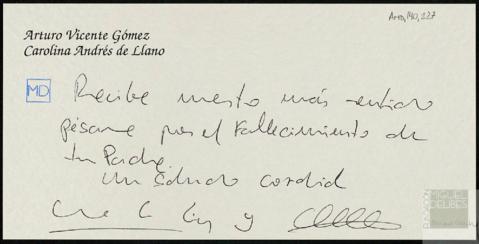 Arro, 140, 127
Arturo Vicente Gómez
Carolina Andrés de Llano
MD
Recibe nuestro más sentido
pésame por el fallecimiento de
tu Padre.
Un saludo cordial
y
MIGUEL
DELIBES
FUNDACIÓN